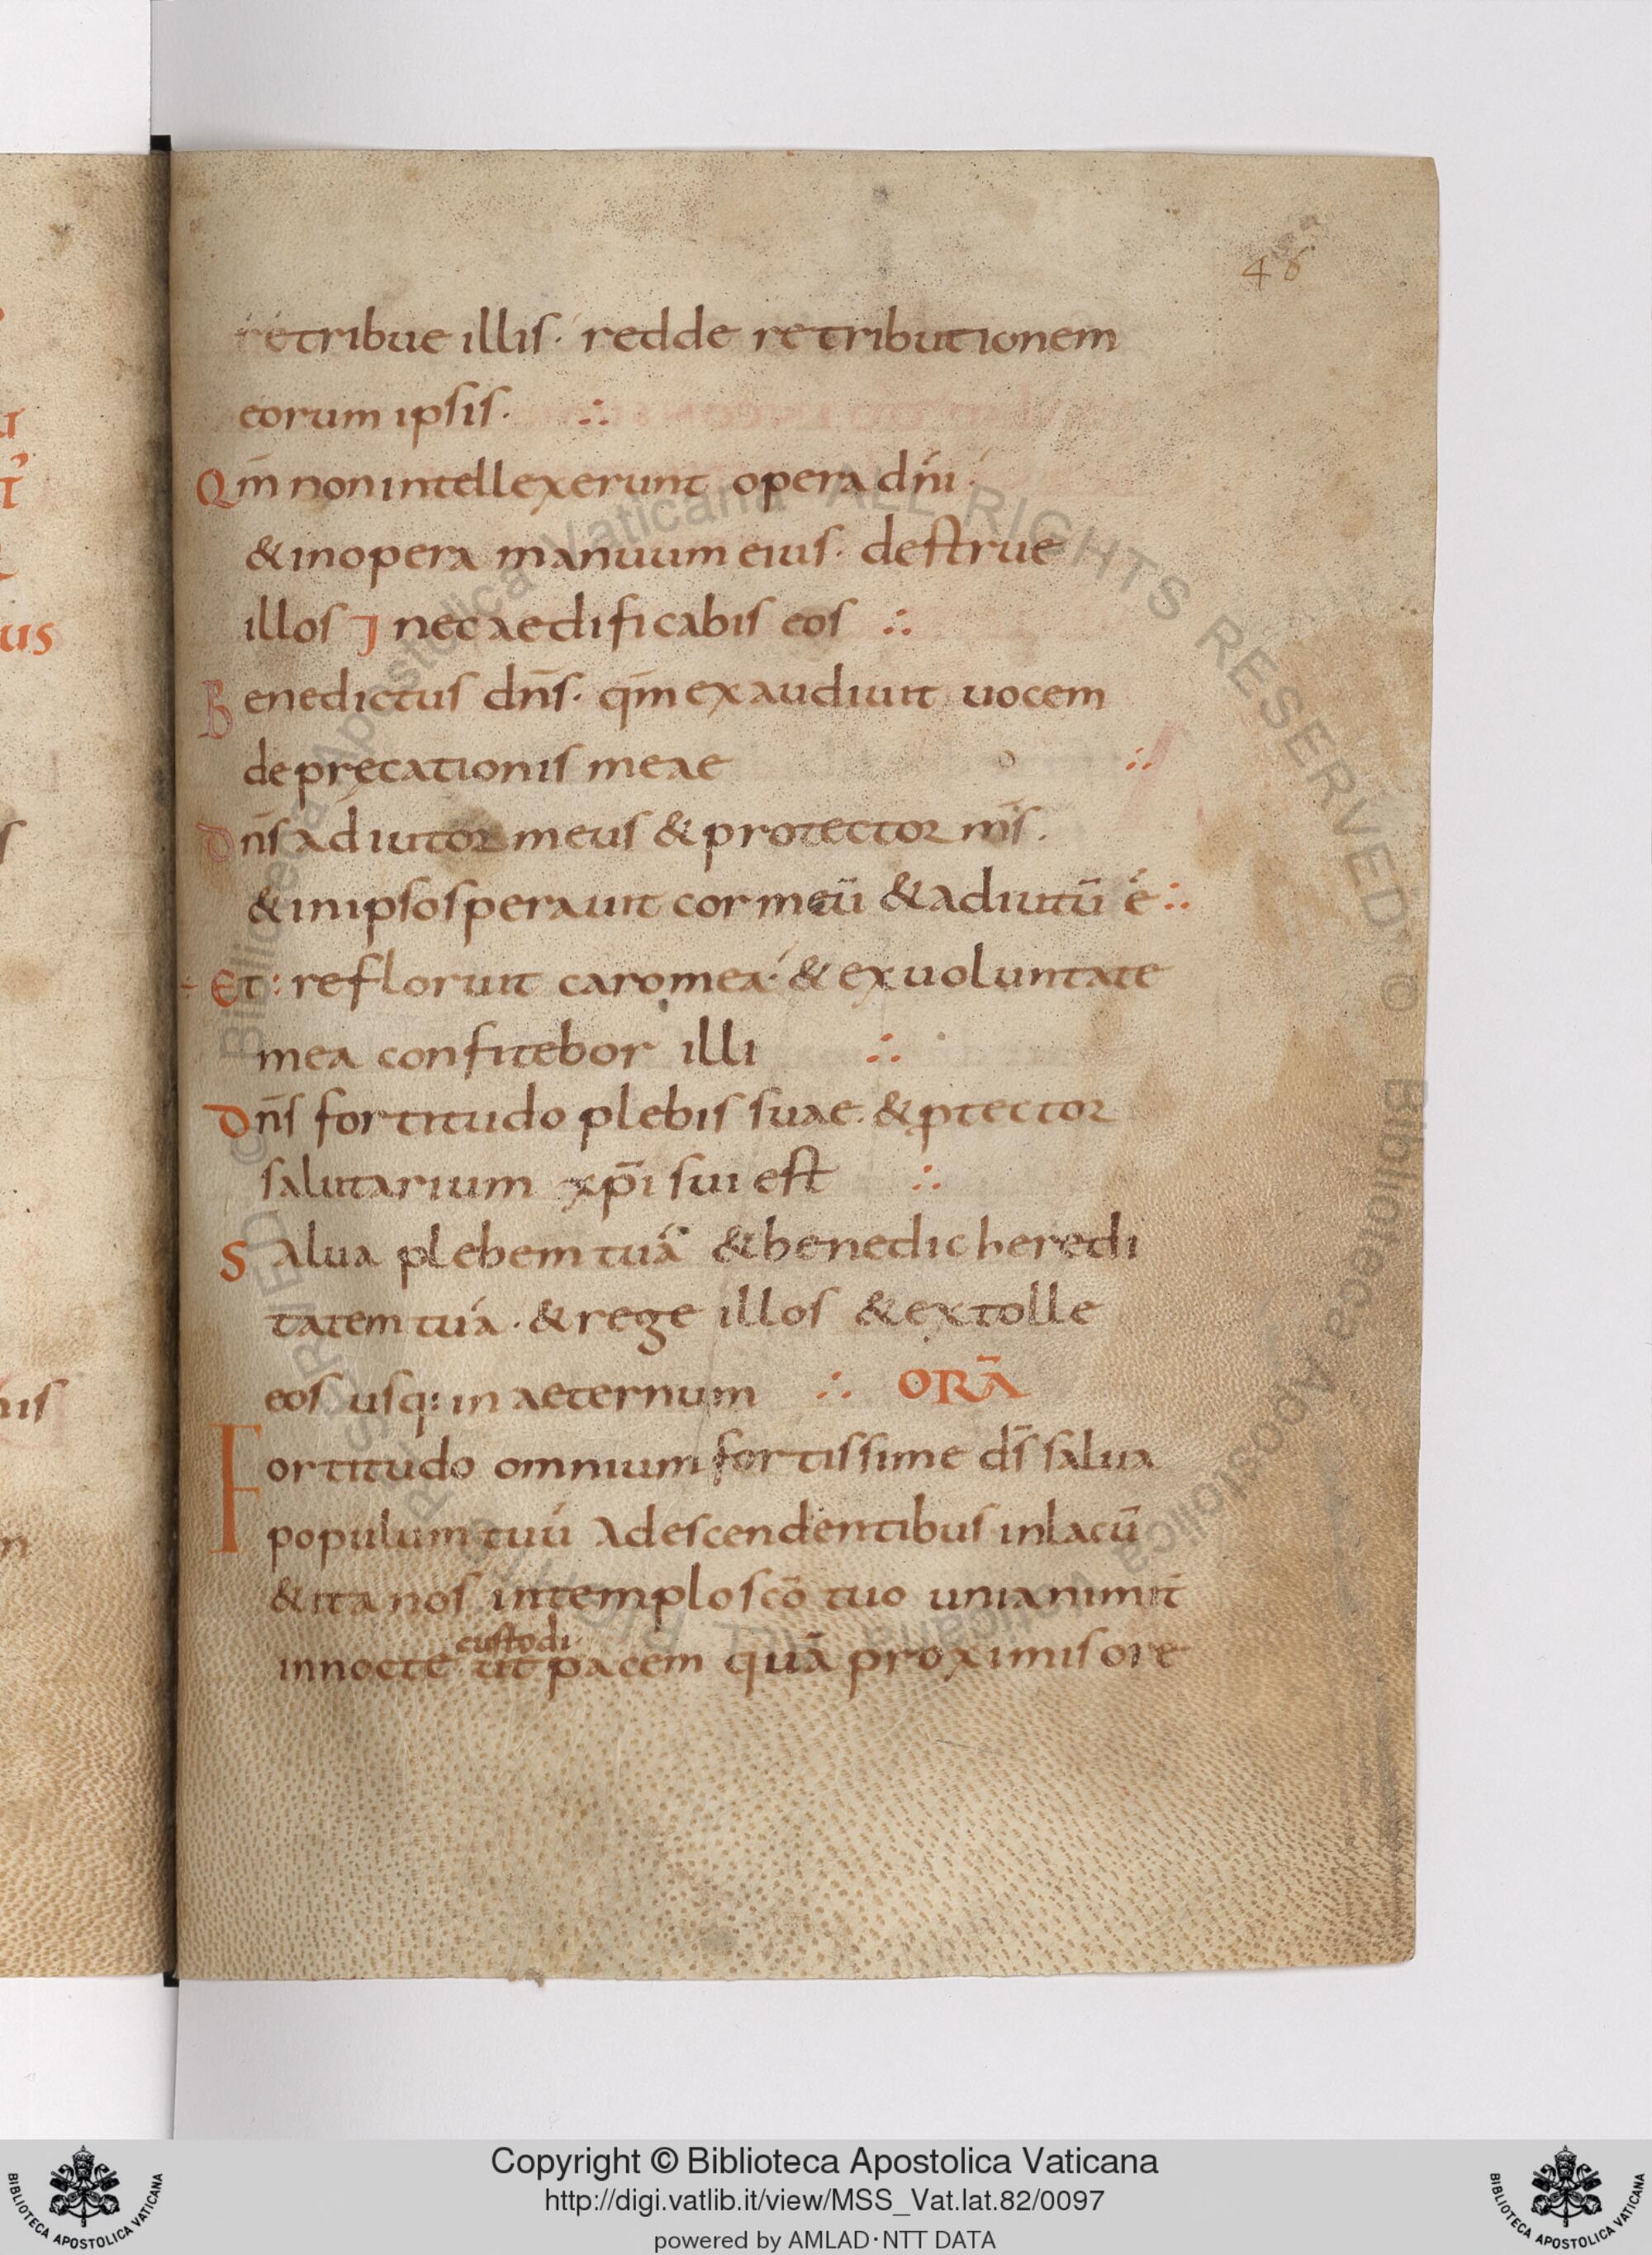 46
retribue illis· redde retributionem
eorum ipsis. ∴
Qm̄ non intellexerunt opera dn̄i·
& in opera manuum eius· destrue
illos J nec aedificabis eos ∴
Benedictus dn̄s· qm̄ exaudiuit uocem
deprecationis meae ∴
Dn̄s adiutor meus & protector m̄s.
& in ipso sperauit cor meū & adiutū ē ∴
÷ Et: refloruit caro mea· & ex uoluntate
mea confitebor illi ∴
Dn̄s fortitudo plebis suae· & ptector
salutarium xp̄i sui est ∴
Salua plebem tuā & benedic heredi
tatem tuā· & rege illos & extolle
eos usq: in aeternum ∴ ORĀ
Fortitudo omnium fortissime ds̄ salua
populum tuū a descendentibus in lacū
& ita nos in templo scō tuo unianimit̄
custodi
innocte tit pacem quā proximis ore
Copyright © Biblioteca Apostolica Vaticana
http://digi.vatlib.it/view/MSS_Vat.lat.82/0097
powered by AMLAD·NTT DATA
BIBLIOTECA APOSTOLICA VATICANA
BIBLIOTECA APOSTOLICA VATICANA